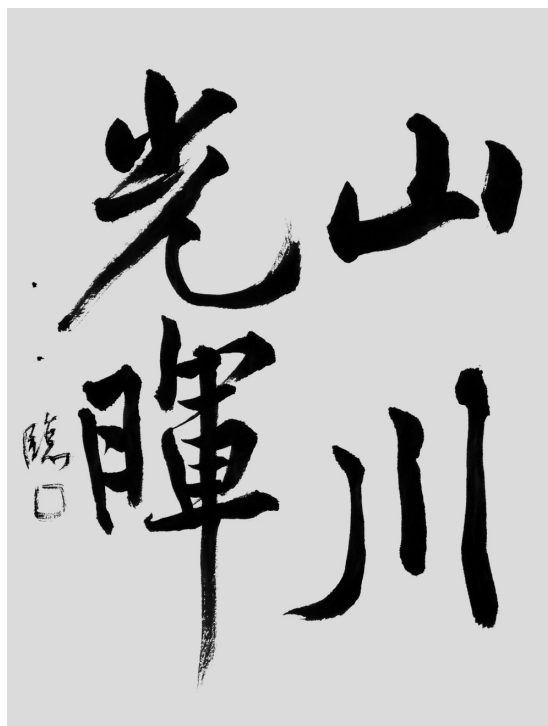 山川
光暉
臨